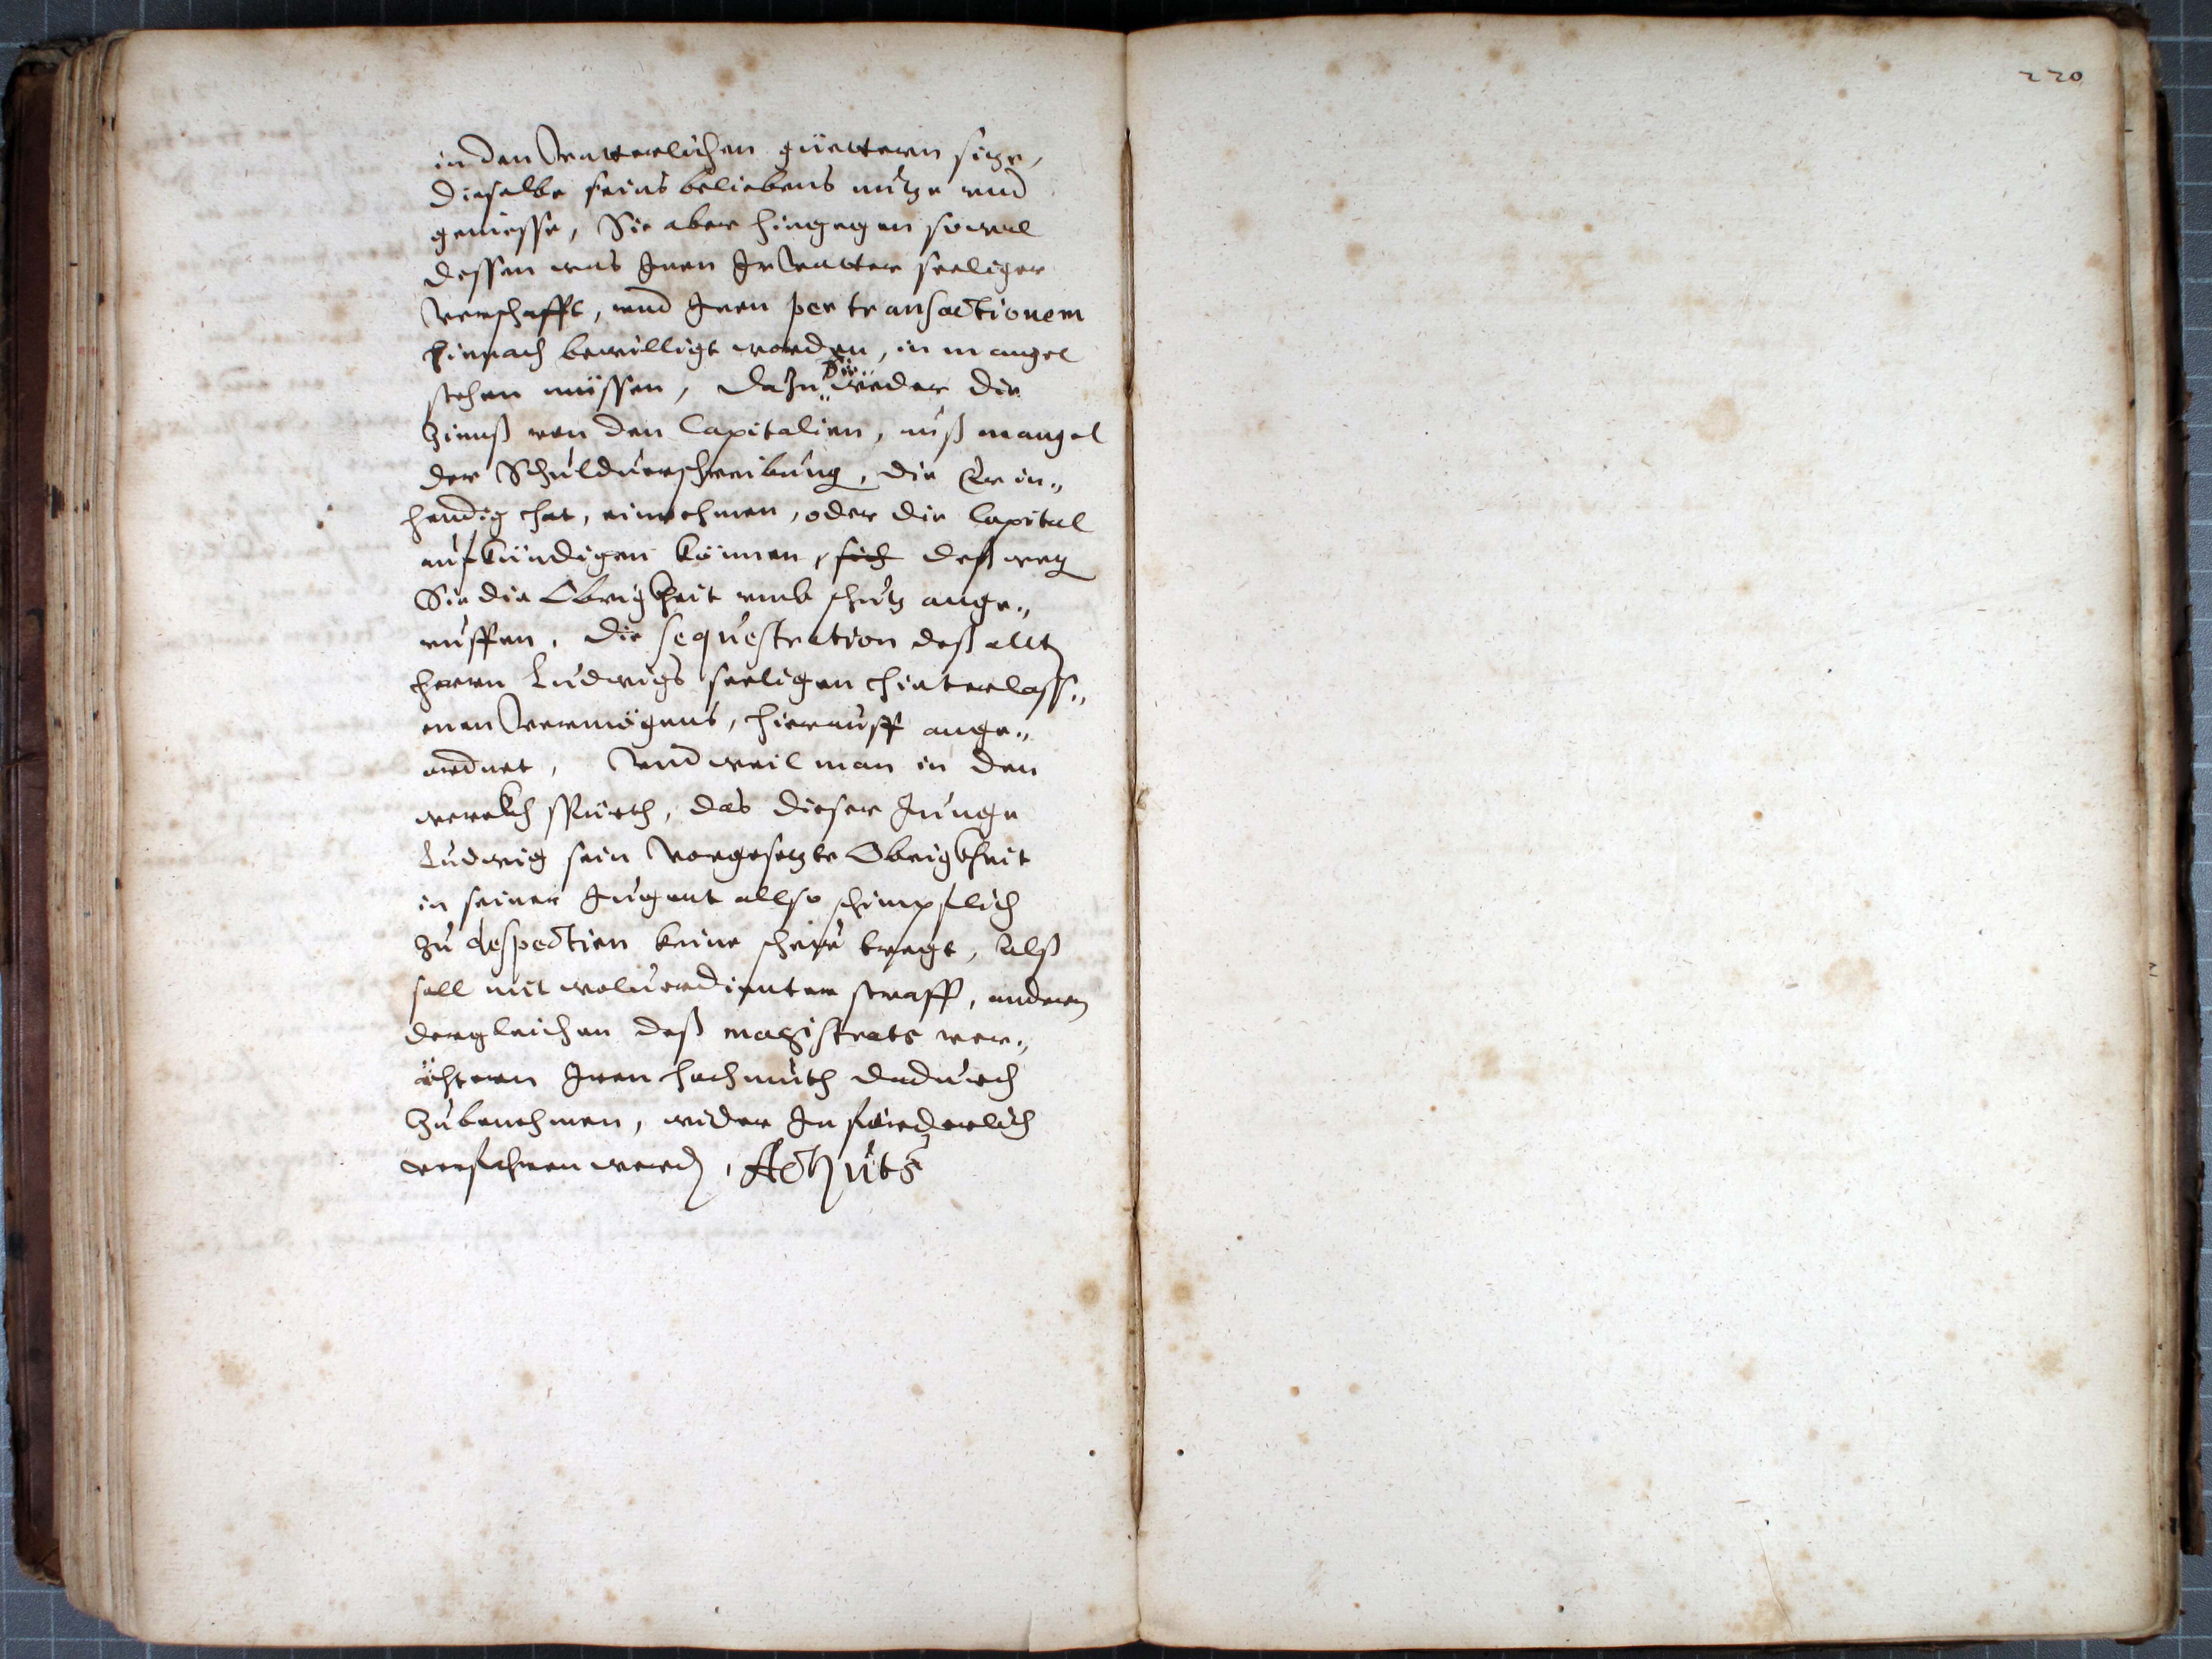 220
in den Vatterlichen güettern sitze,
dieselbe seins beliebens nutze vnd
geniesse, Sie aber hingegen sowol
dessen was Jnen Jr Vatter seeliger
verschafft, vnd Jnen per transactionem
hienach bewilligt worden, in mangel
stehen müssen, dazu Sie weder die
Zinnß von den Capitalien, auß mangel
der Schuldverschreibung, die Er in„
handig hat, einnehmen, oder die Capital
aufkündigen können, sich deßweg
Sie die Obrigkheit vmb schutz ange„
ruffen, die sequestration deß allt
herrn Ludwigs seeligen hinterlass„
enen Vermögens, hierauff ange„
ordnet, Vnd weil man in den
werckh spürth, das dieser Junge
Ludwig sein Vorgesetzte Obrigkheit
in seiner Jugent allso schimpflich
zu despectien keine scheüe tregt, Alß
soll mit wolverdientem straff, andern
dergleichen deß magistrats ver„
ächtern Jren hochmuth dadurch
zubenehmen, wider Jn fürderlich
verfahren werd, Act: uts